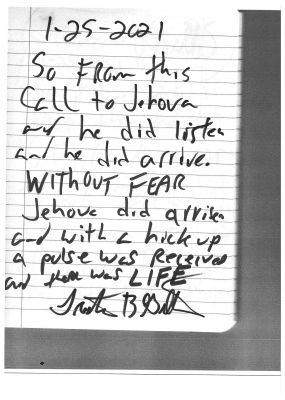 1-25-2021
So From this
Call to Jehova
and he did listen
and he did arrive.
WITHOUT FEAR
Jehove did arrisen
and with a hickup
a pulse was Received
and there was LIFE